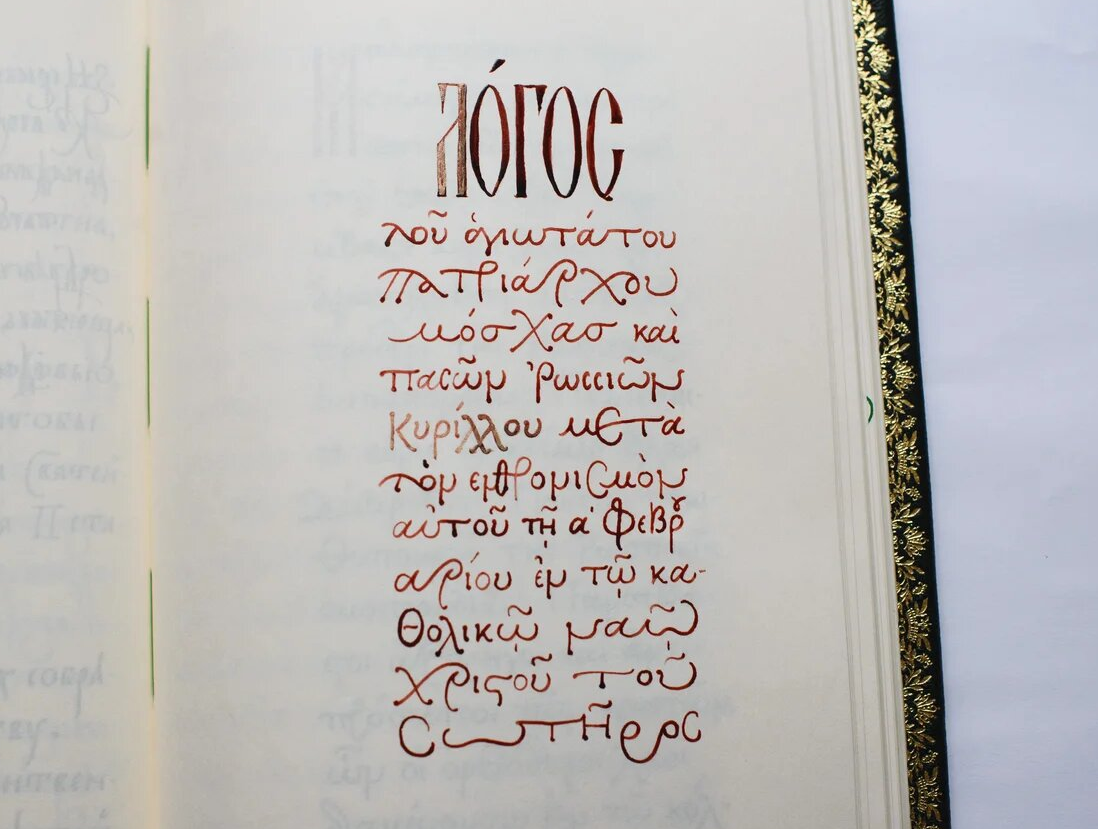 λόγος
τοῦ ἁγιωτάτου
πατριάρχου
μόσχας καὶ
πασῶν Ῥωσσιῶν
Κυρίλλου μετὰ
τὸν ενθρονισμὸν
αὐτοῦ τῇ α΄ Φεβρ
αρίου ἐν τῷ κα-
θολικῷ ναῷ
χριστοῦ τοῦ
Σωτῆρος